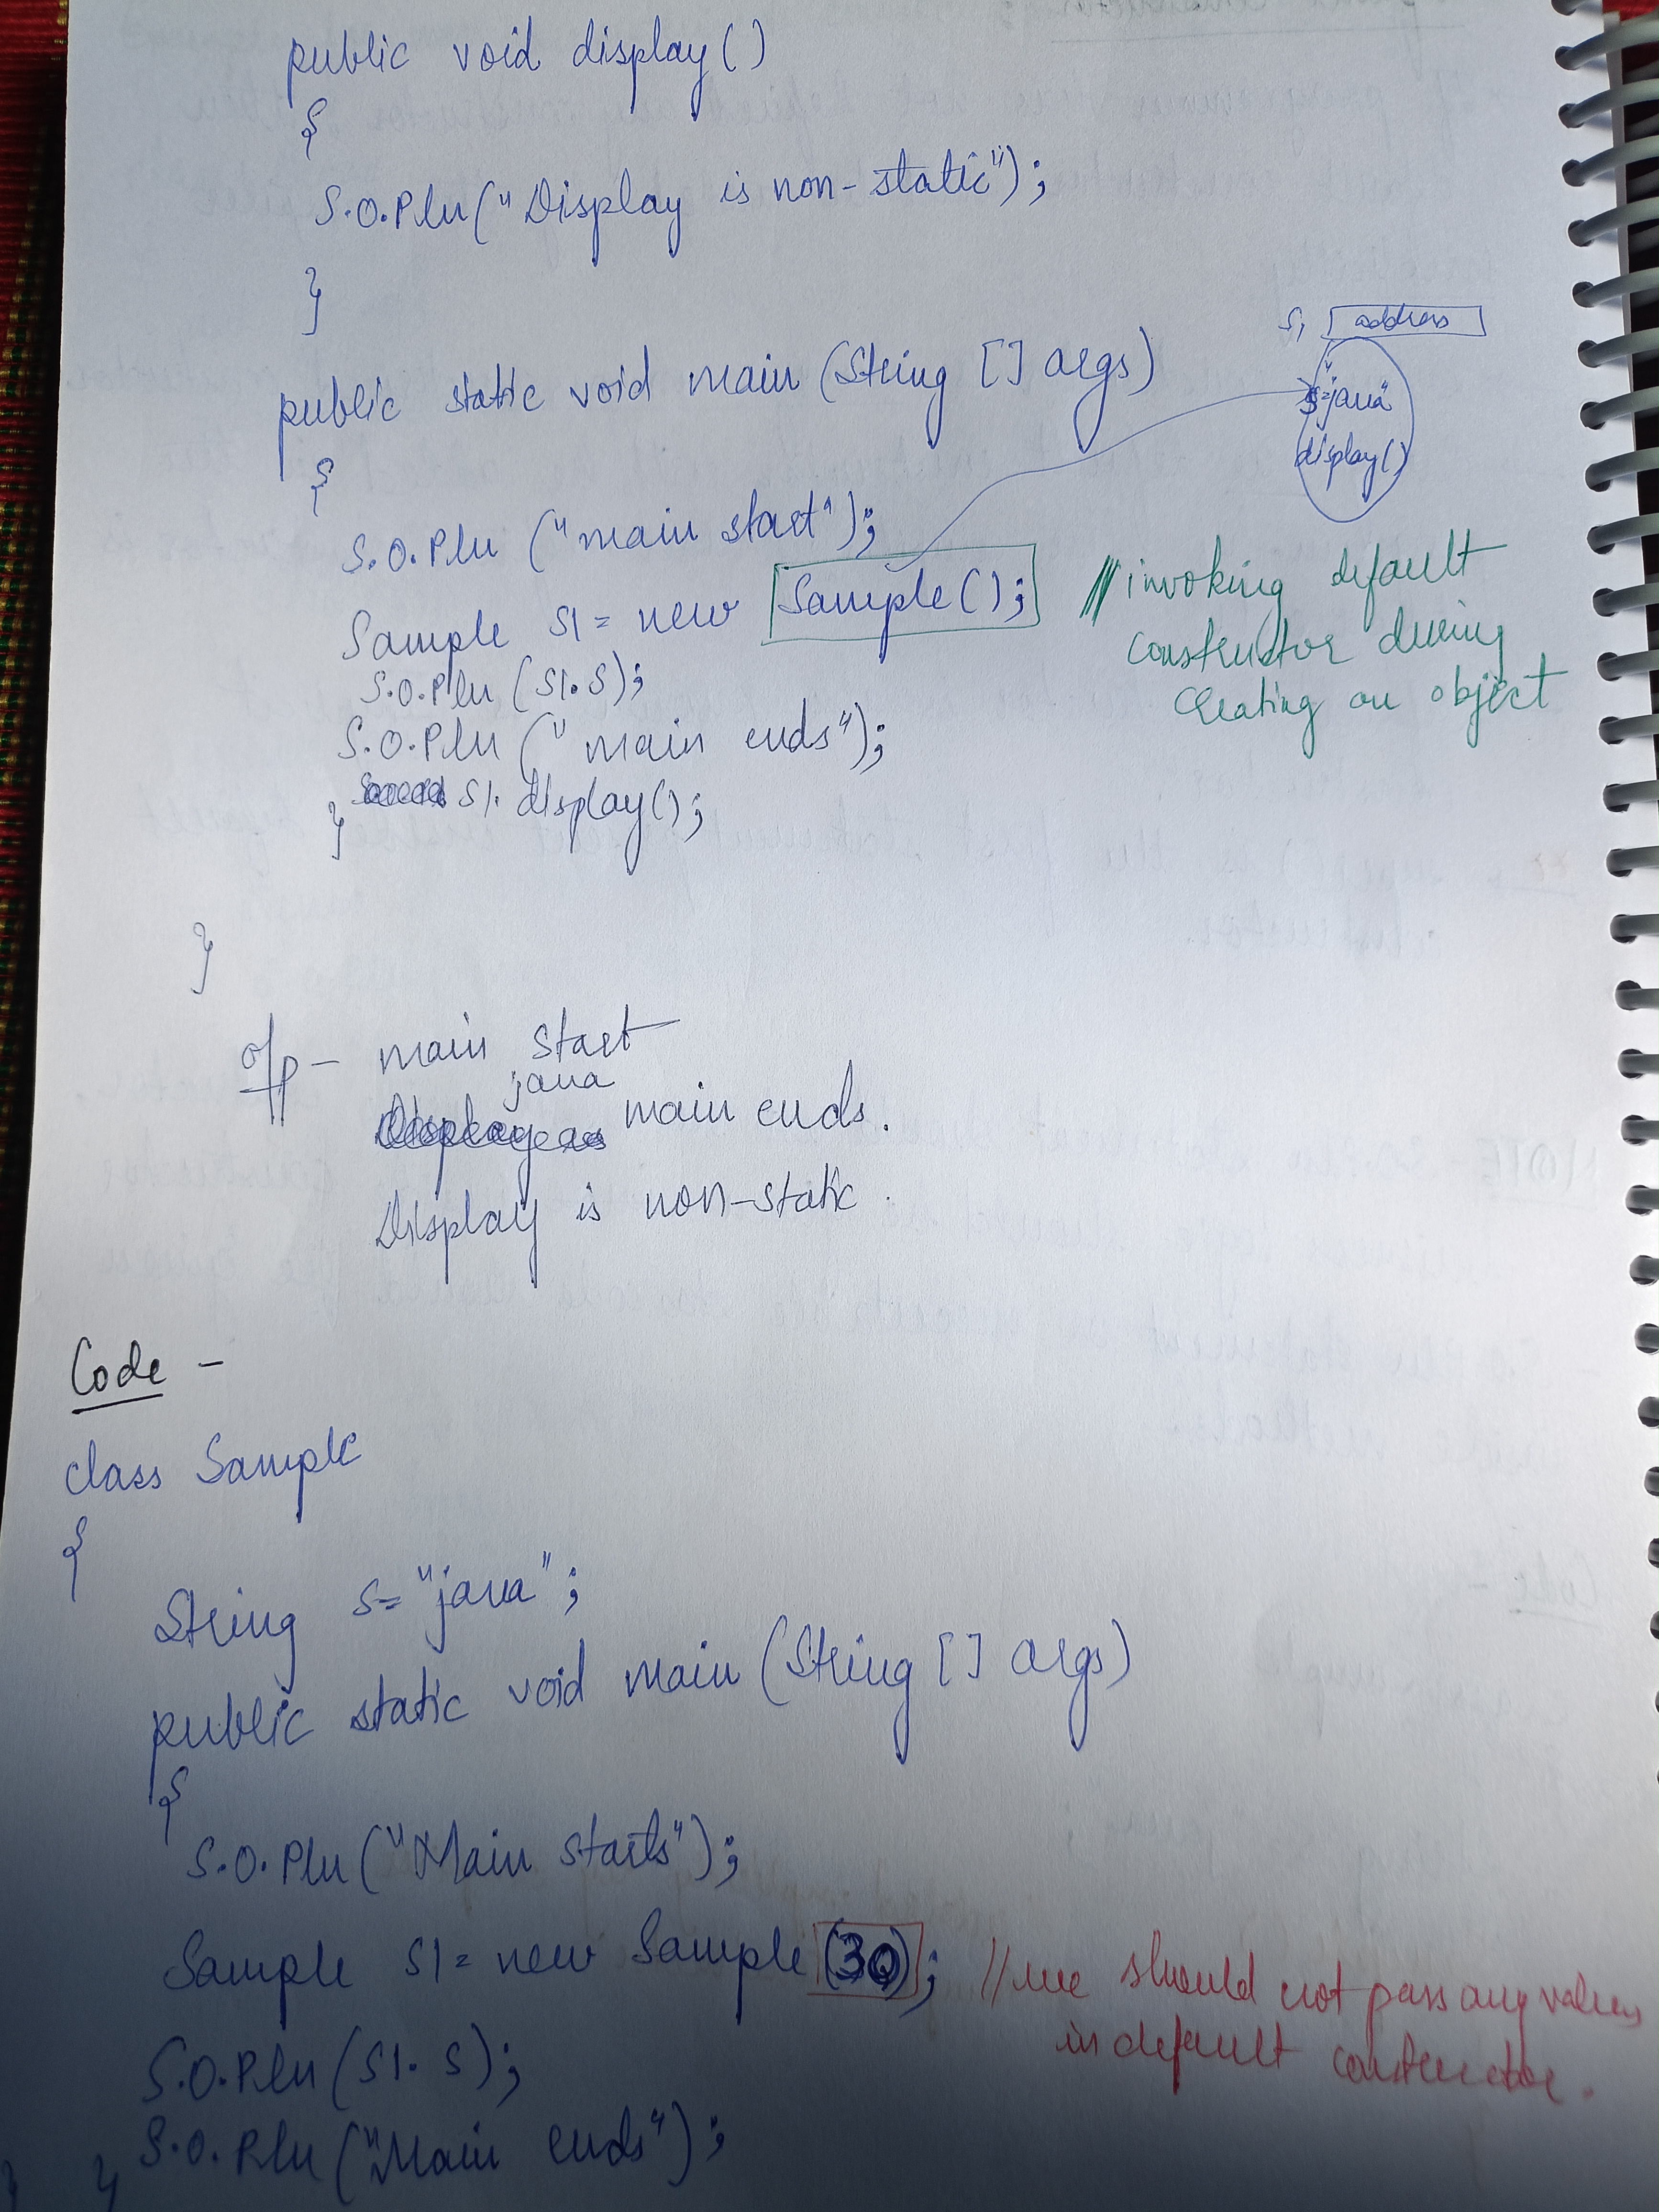 public void display()
{
S.O.Pln("Display is non-static");
}
S1 address
s="java"
display()
public static void main (String [] args)
{
S.O.Pln ("main start");
Sample S1 = new Sample();
//invoking default
constructor during
creating an object
S.O.Pln (S1.S);
S.O.Pln ("main ends");
S1.display();
}
}
o/p - main start
java
main ends.
Display is non-static.
Code -
class Sample
{
String s= "java";
public static void main (String [] args)
{
S.O.Pln ("Main starts");
Sample S1 = new Sample (30); //we should not pass any values
in default constructor.
S.O.Pln (S1.S);
S.O.Pln ("Main ends");
} }